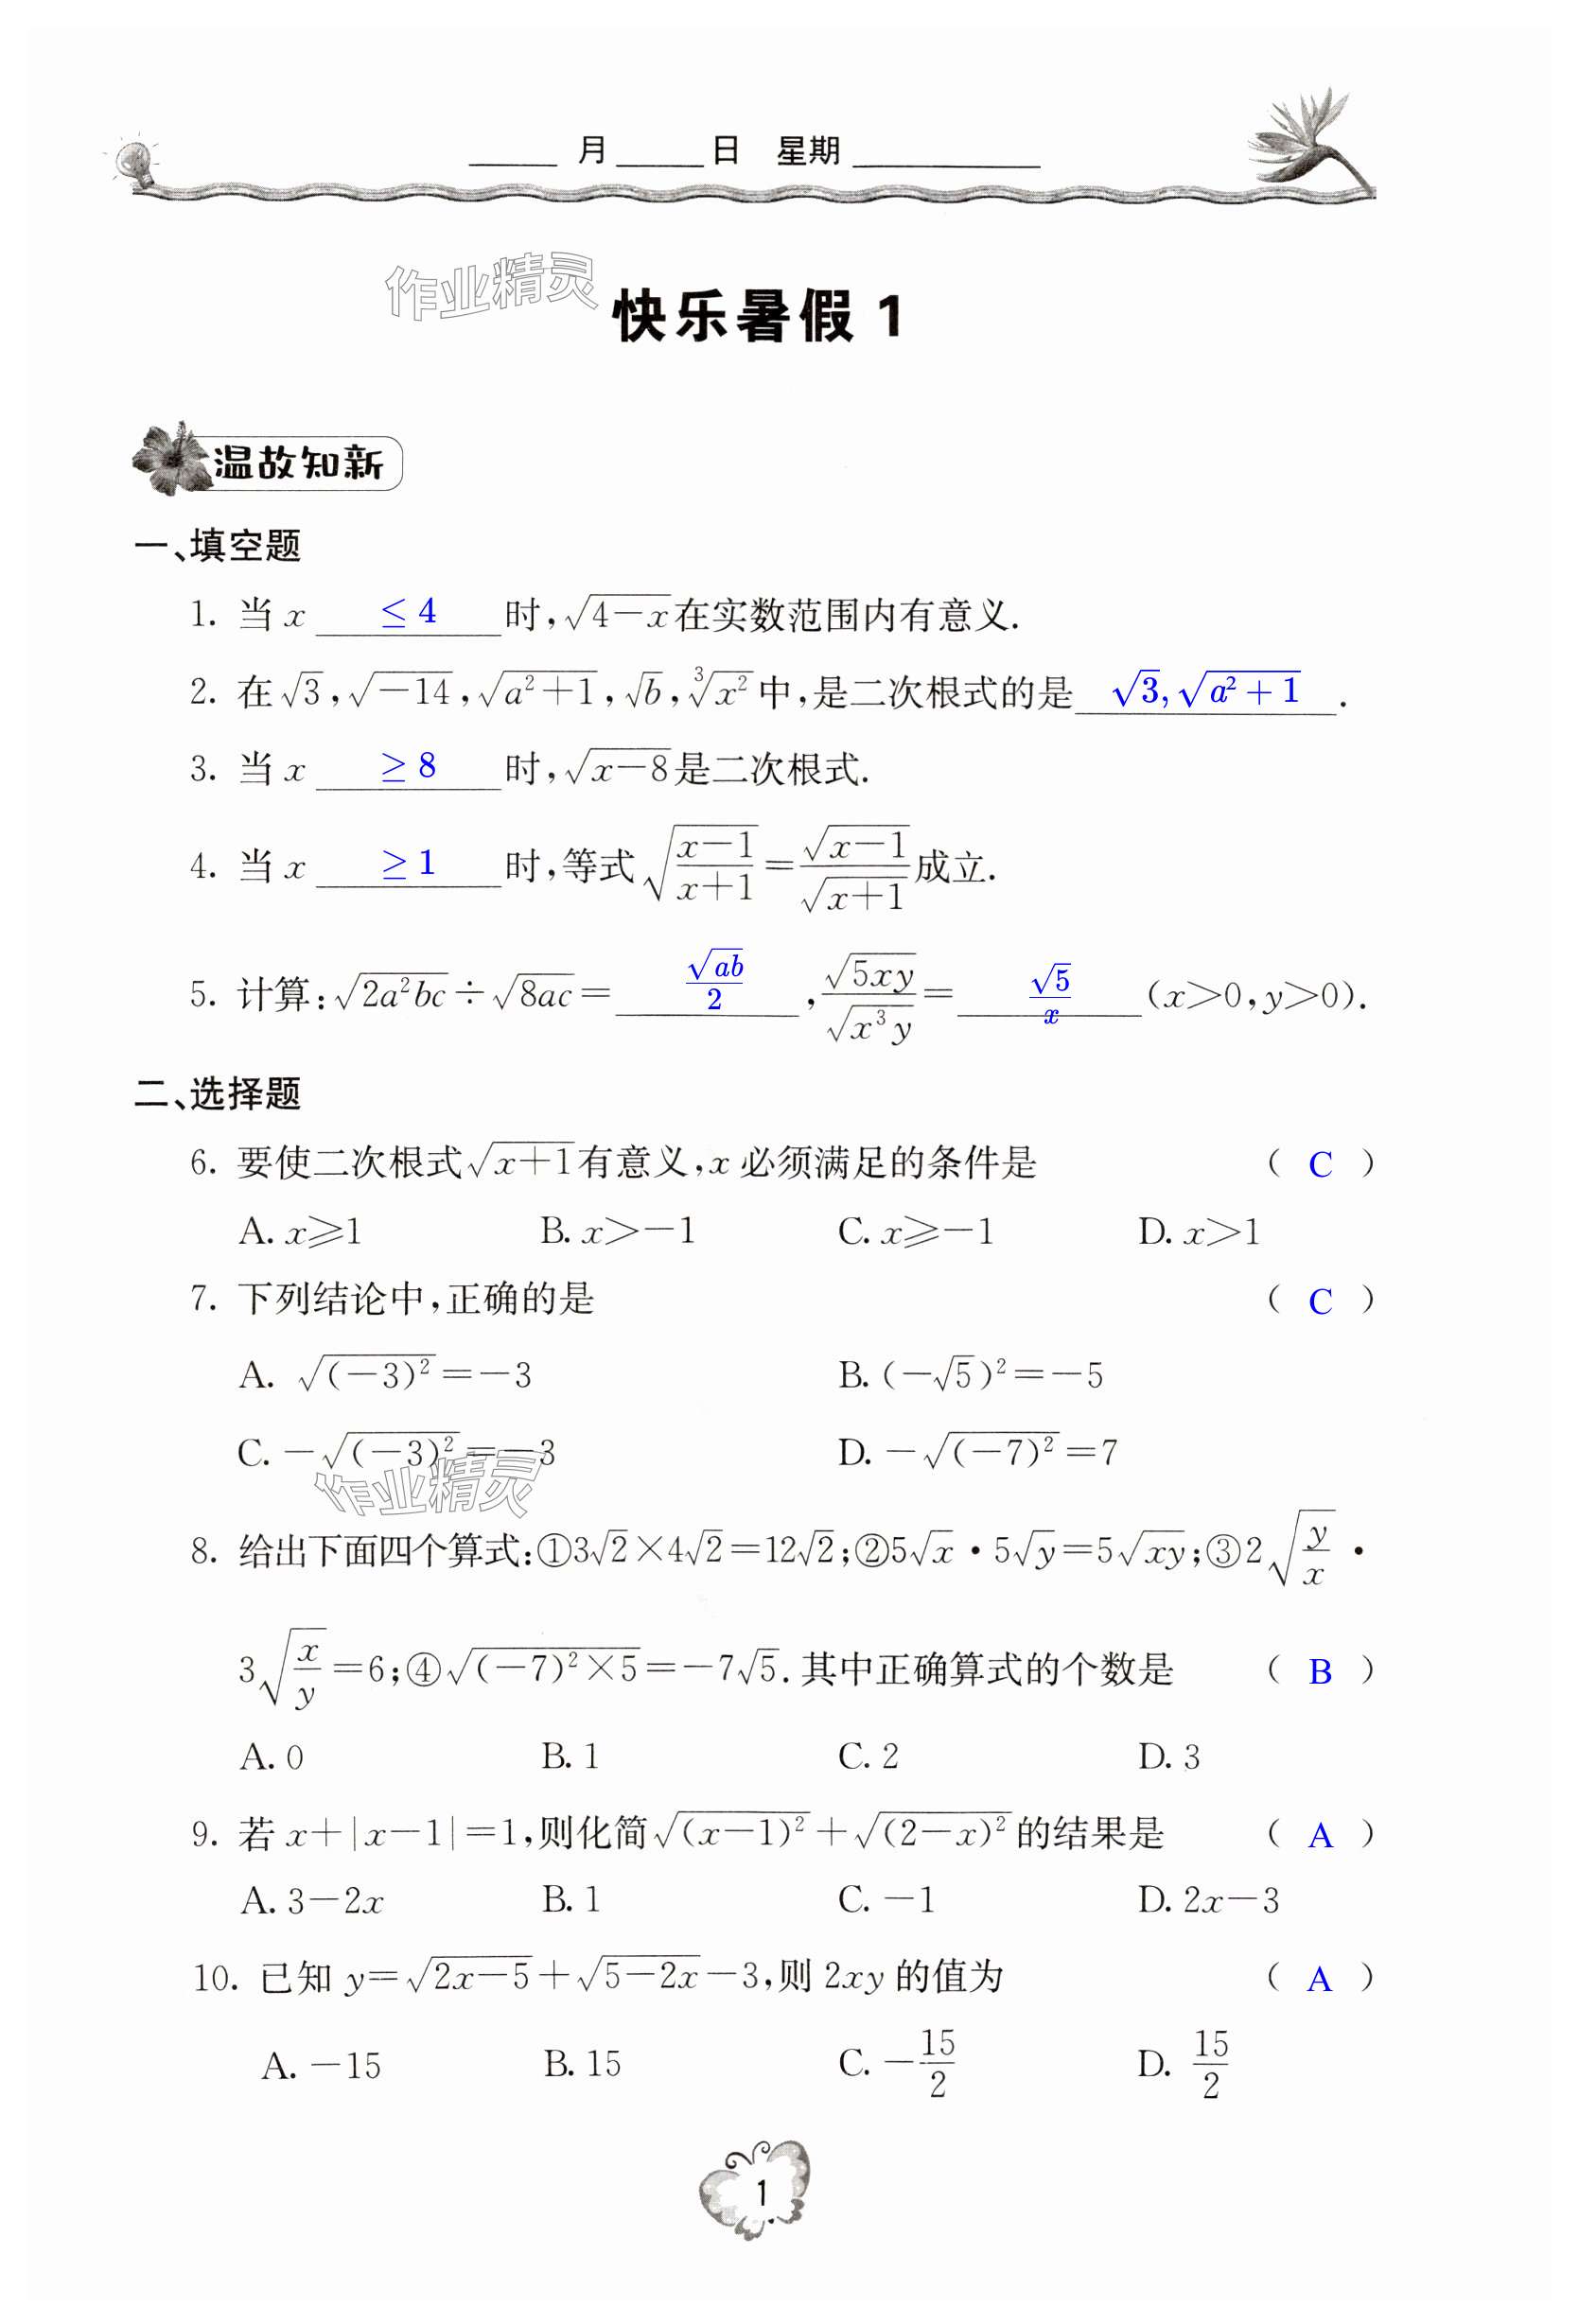 ____月____日 星期________
作业精灵
快乐暑假 1
温故知新
一、填空题
1. 当 x ≤ 4 时,√(4-x)在实数范围内有意义.
2. 在√3,√(-14),√(a²+1),√b,∛(x²)中,是二次根式的是 √3,√(a²+1) .
3. 当 x ≥ 8 时,√(x-8)是二次根式.
4. 当 x ≥ 1 时,等式√((x-1)/(x+1))=√(x-1)/√(x+1)成立.
5. 计算:√(2a²bc)÷√(8ac)= √(ab)/2 ,√(5xy)/√(x³y)= √5/x (x>0,y>0).
二、选择题
6. 要使二次根式√(x+1)有意义,x 必须满足的条件是 ( C )
A. x⩾1 B. x>-1 C. x⩾-1 D. x>1
7. 下列结论中,正确的是 ( C )
A. √((-3)²)=-3 B. (-√5)²=-5
C. -√((-3)²)=-3 D. -√((-7)²)=7
作业精灵
8. 给出下面四个算式:①3√2×4√2=12√2;②5√x·5√y=5√(xy);③2√(y/x)·
3√(x/y)=6;④√((-7)²×5)=-7√5. 其中正确算式的个数是 ( B )
A. 0 B. 1 C. 2 D. 3
9. 若 x+|x-1|=1,则化简√((x-1)²)+√((2-x)²)的结果是 ( A )
A. 3-2x B. 1 C. -1 D. 2x-3
10. 已知 y=√(2x-5)+√(5-2x)-3,则 2xy 的值为 ( A )
A. -15 B. 15 C. -15/2 D. 15/2
1